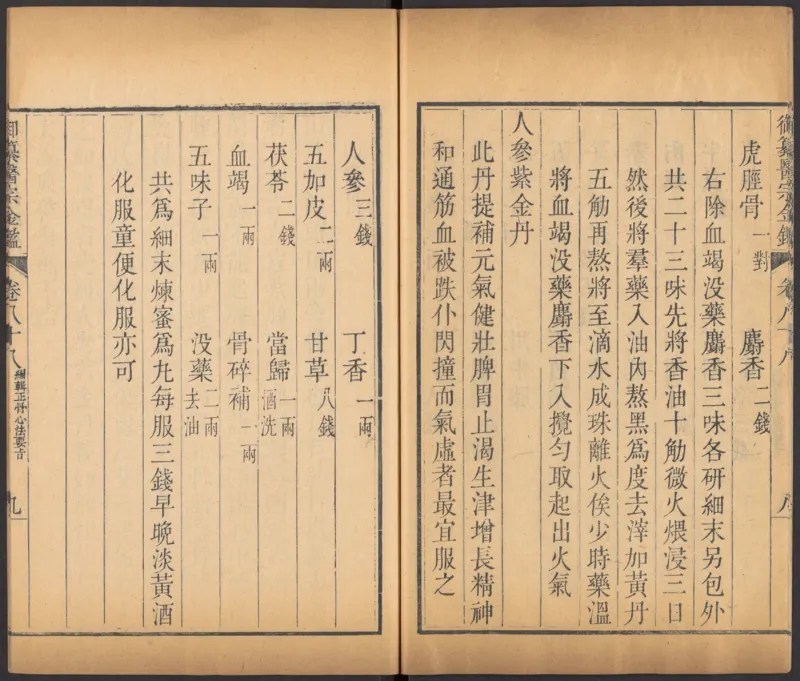 虎脛骨一對 麝香二錢
右除血竭没藥麝香三味各研細末另包外
共二十三味先將香油十觔微火煨浸三日
然後將羣藥入油內熬黑爲度去滓加黃丹
五觔再熬將至滴水成珠離火俟少時藥溫
將血竭没藥麝香下入攪勻取起出火氣
人參紫金丹
此丹提補元氣健壯脾胃止渴生津增長精神
和通筋血被跌仆閃撞而氣虛者最宜服之
人參三錢 丁香一兩
五加皮二兩 甘草八錢
茯苓二錢 當歸酒洗一兩
血竭一兩 骨碎補一兩
五味子一兩 没藥去油二兩
共爲細末煉蜜爲丸每服三錢早晚淡黃酒
化服童便化服亦可
御纂醫宗金鑑 卷八十八 編輯正骨心法要旨 九